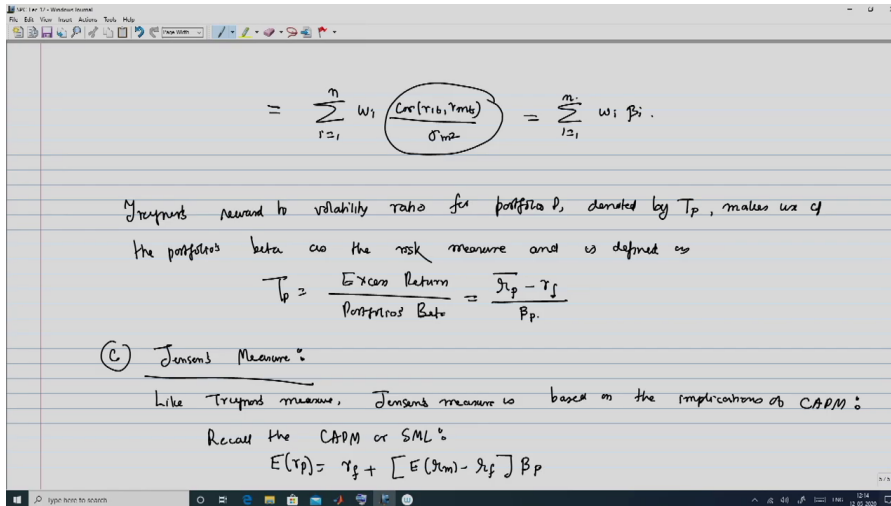 SPC Lec 17 - Windows Journal
File Edit View Insert Actions Tools Help
Page Width
= n ∑ i=1 wi Cov(rit, rmt) / σm2 = n ∑ i=1 wi βi.
Treynor's reward to volatility ratio for portfolio P, denoted by Tp, makes use of
the portfolio's beta as the risk measure and is defined as
Tp = Excess Return / Portfolio's Beta = r̄p - rf / βp.
(C) Jensen's Measure:
Like Treynor's measure, Jensen's measure is based on the implications of CAPM:
Recall the CAPM or SML:
E(rp) = rf + [E(rm) - rf] βp
5/5
Type here to search
ENG
12:14
12-03-2020